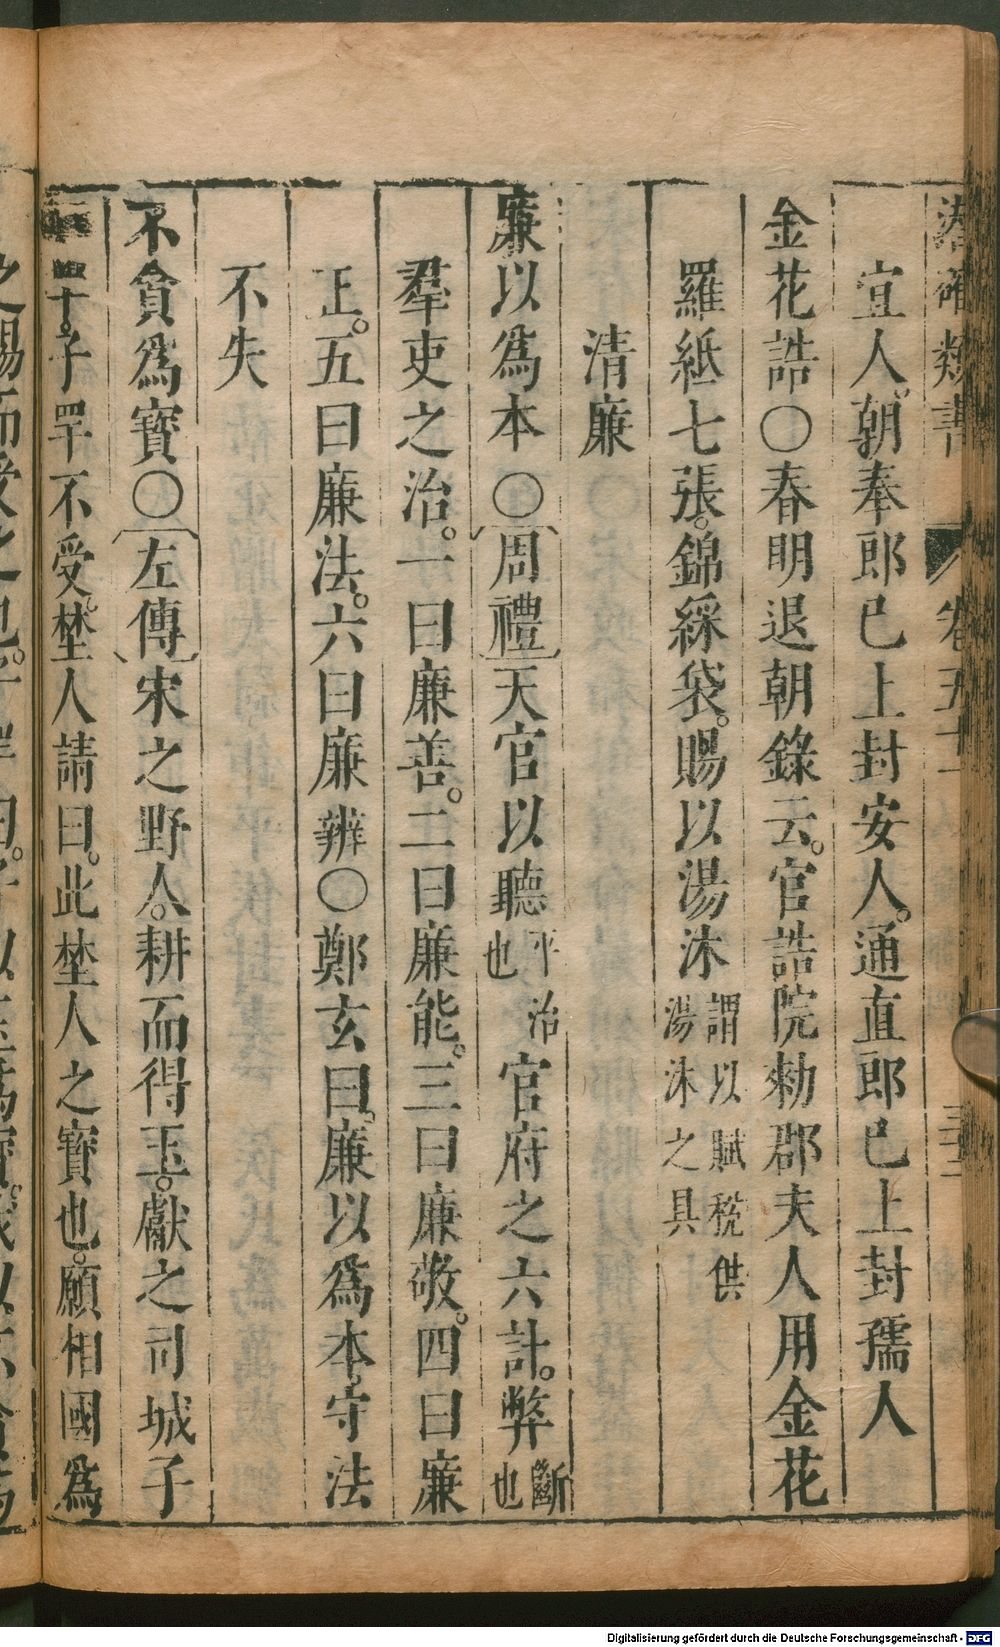 潛確類書 卷五十一 三十二
宜人。朝奉郎已上封安人。通直郎已上封孺人
金花誥○春明退朝錄云。官誥院勑郡夫人用金花
羅紙七張。錦綵袋。賜以湯沐謂以賦稅供湯沐之具
清廉
廉以爲本○周禮天官以聽平治也官府之六計。弊斷也
羣吏之治。一曰廉善。二曰廉能。三曰廉敬。四曰廉
正。五曰廉法。六曰廉辨○鄭玄曰。廉以爲本。守法
不失
不貪爲寶○左傳宋之野人。耕而得玉。獻之司城子
罕。子罕不受。埜人請曰。此埜人之寶也。願相國爲
之賜而受之也。子罕曰。子以玉爲寶。我以不貪爲
Digitalisierung gefördert durch die Deutsche Forschungsgemeinschaft - DFG